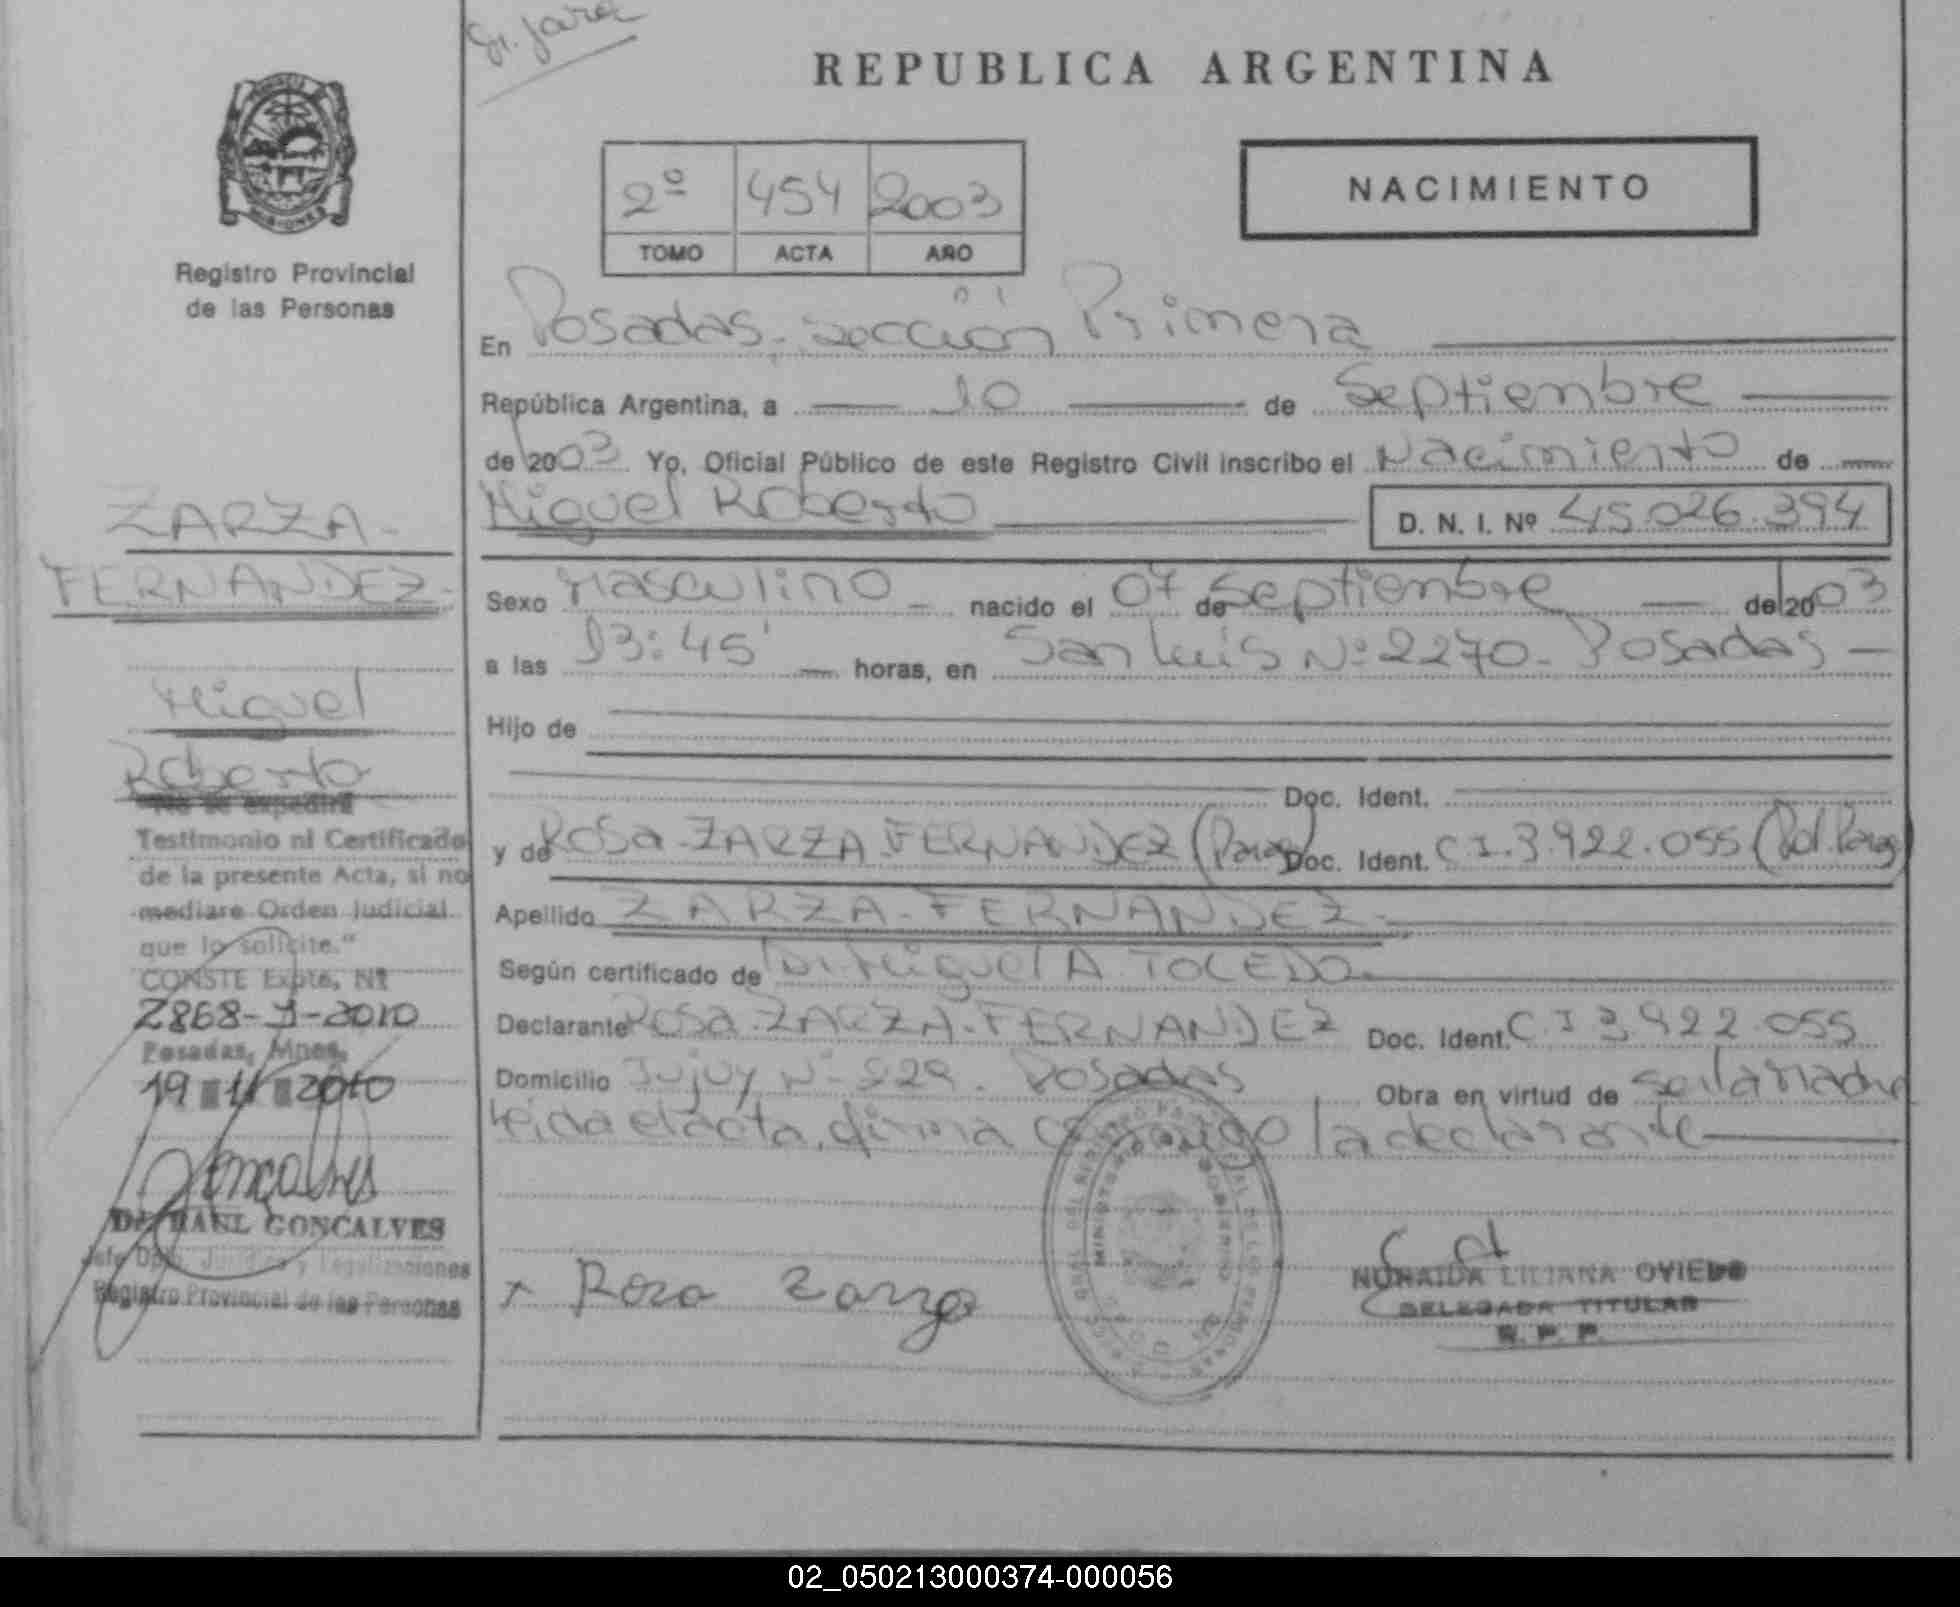 Sr. Jara
REPUBLICA ARGENTINA
2º 454 2003
TOMO ACTA AÑO
NACIMIENTO
Registro Provincial
de las Personas
En Posadas. sección Primera
República Argentina, a 10 de Septiembre
de 2003 Yo, Oficial Público de este Registro Civil inscribo el Nacimiento de
Miguel Roberto D. N. I. Nº 45.026.394
Sexo Masculino nacido el 07 de Septiembre de 2003
a las 13:45' horas, en San Luis Nº 2270. Posadas
Hijo de
Doc. Ident.
y de Rosa ZARZA FERNANDEZ (Parag) Doc. Ident. C I. 3.922.055 (Pol. Parag)
Apellido ZARZA-FERNANDEZ.
Según certificado de Dr. Miguel A TOLEDO
Declarante Rosa ZARZA-FERNANDEZ Doc. Ident. C.I 3,922.055
Domicilio Jujuy Nº 929. Posadas Obra en virtud de ser la madre
Leida el acta, firma conmigo la declarante
x Rosa Zarza
NURAIDA LILIANA OVIEDO
DELEGADA TITULAR
R. P. P.
ZARZA-
FERNANDEZ-
Miguel
Roberto
"No se expedirá
Testimonio ni Certificado
de la presente Acta, si no
mediare Orden Judicial
que lo solicite."
CONSTE Expte, Nº
2868-J-2010
Posadas, Mnes,
19 11 2010
Goncalves
Dr RAUL GONCALVES
Jefe Dpto. Jurídico y Legalizaciones
Registro Provincial de las Personas
02_050213000374-000056